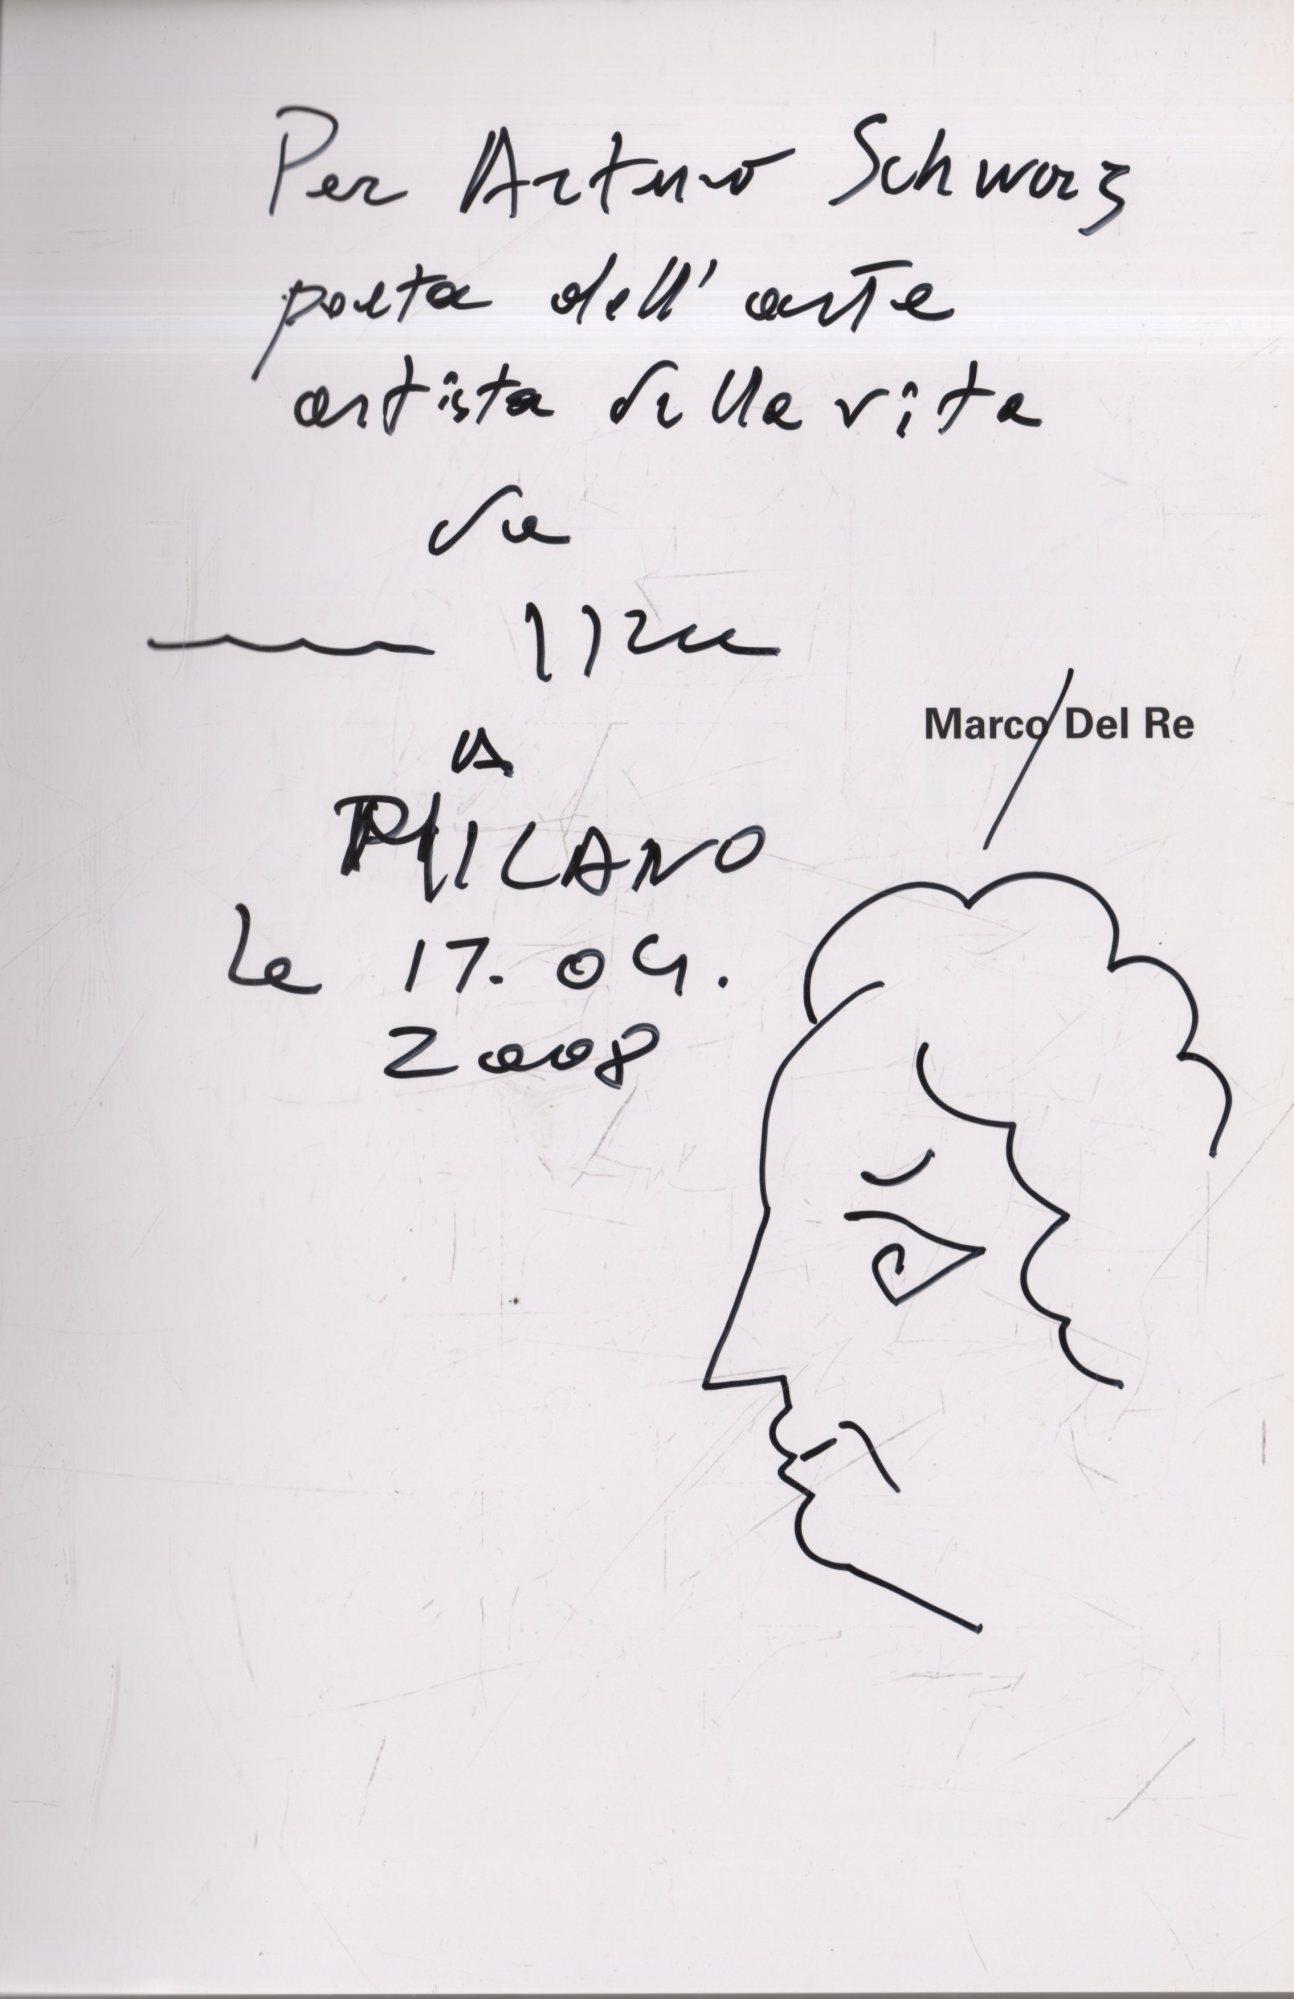 Per Arturo Schwarz
poeta dell'arte
artista della vita
da
a
MILANO
le 17.04.
2008
Marco Del Re